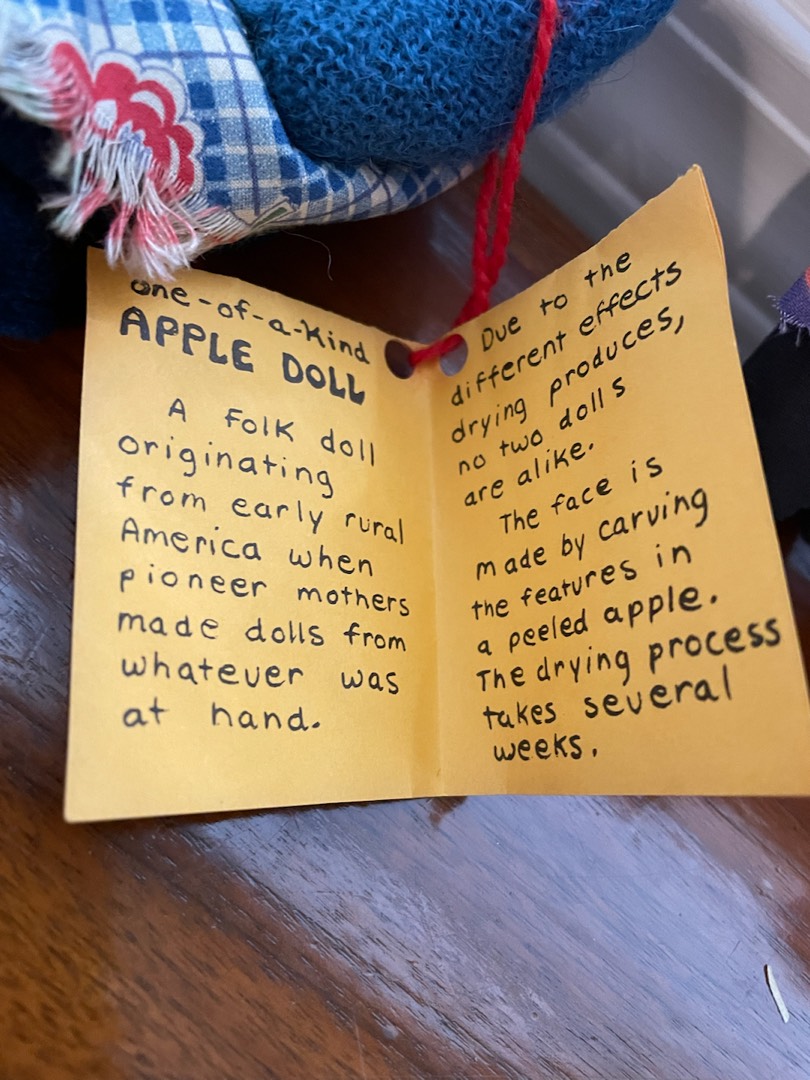 one-of-a-kind
APPLE DOLL
A FOlK doll
originating
from early rural
America when
pioneer mothers
made dolls from
whatever was
at hand.
Due to the
different effects
drying produces,
no two dolls
are alike.
The face is
made by carving
the features in
a peeled apple.
The drying process
takes several
weeks.